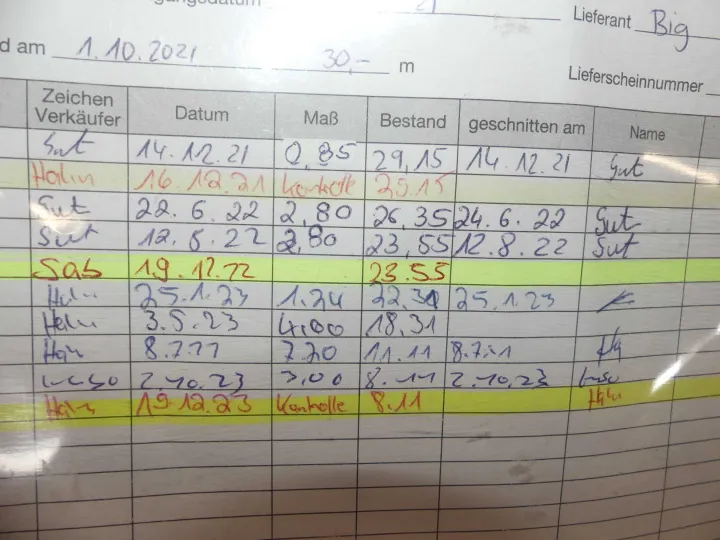 Lieferant Big
d am 1.10.2021 30,- m
Lieferscheinnummer
Zeichen Verkäufer Datum Maß Bestand geschnitten am Name
Sut 14.12.21 0,85 29,15 14.12.21 Sut
16.12.21 Kontrolle 29.15
Sut 22.6.22 2,80 26,35 24.6.22 Sut
Sut 12.8.22 2,80 23,55 12.8.22 Sut
Sab 19.12.22 23.55
25.1.23 1.24 22.31 25.1.23
3.5.23 4,00 18,31
11.11
2.10.23 3,00 8.11 2.10.23
19.12.23 Kontrolle 8.11